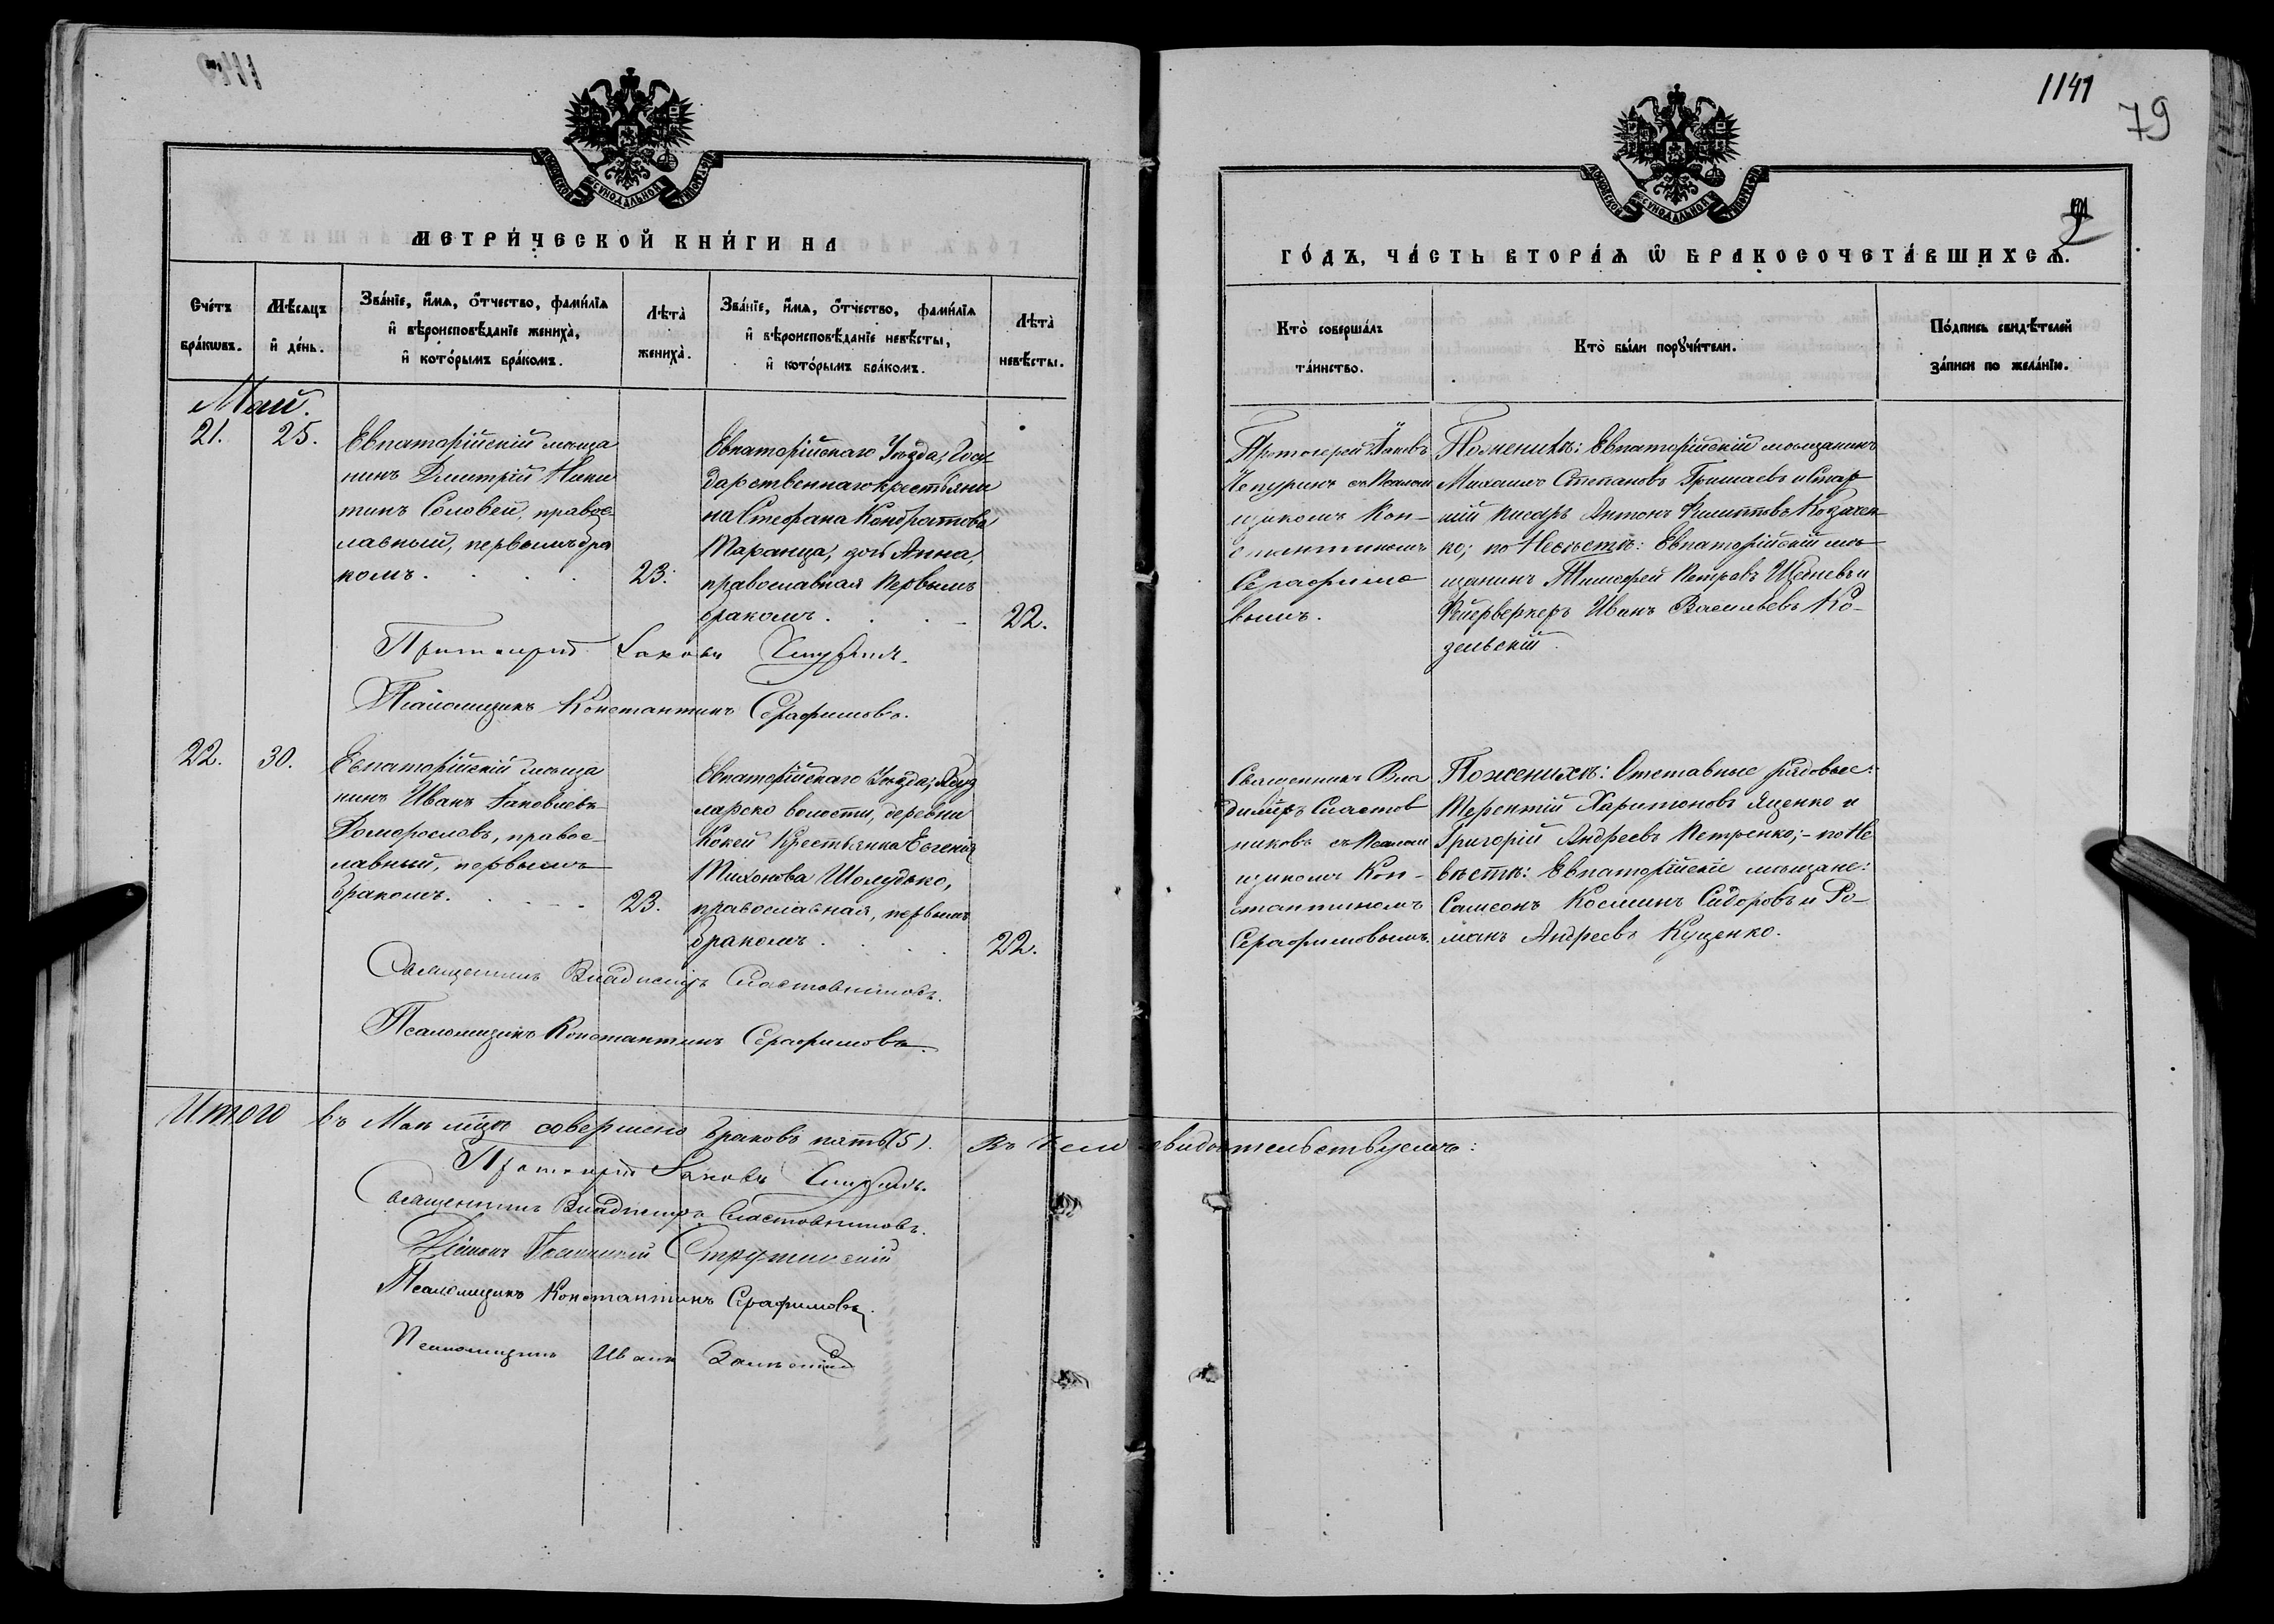 1141
79
МЕТРИ́ЧЕСКОЙ КНИ́ГИ НА
Сче́тъ бра́кѡвъ.
Мѣ́сяцъ и҆ де́нь.
Зва́нїе, и҆́мѧ, ѻ҆́тчество, фами́лїѧ
и҆ вѣроисповѣ́данїе жениха̀,
и҆ кото́рымъ бра́комъ.
Лѣта̀ жениха̀.
Зва́нїе, и҆́мѧ, ѻ҆́тчество, фами́лїѧ
и҆ вѣроисповѣ́данїе невѣ́сты,
и҆ кото́рымъ бра́комъ.
Лѣта̀ невѣ́сты.
Май.
21.
25.
Евпаторійскій мѣща
нинъ Дмитрій Ники
тинъ Соловей, правос
лавный, первымъ бра
комъ.
23.
Евпаторійскаго Уѣзда, Госу
дарственнаго крестьяни
на Стефана Кондратова
Таранца, дочь Анна,
православная первымъ
бракомъ.
22.
Протоіерей Іаковъ Чепуринъ.
Псаломщикъ Константинъ Серафимовъ.
22.
30.
Евпаторійскій мѣща
нинъ Иванъ Іаковлевъ
Доморословъ, правос
лавный, первымъ
бракомъ.
23.
Евпаторійскаго Уѣзда,
волости, деревни
Крестьянка Евгенія
Тихонова Шолудько,
православная, первымъ
бракомъ.
22.
Священникъ Владимиръ Сластовниковъ.
Псаломщикъ Константинъ Серафимовъ.
Итого въ Маѣ мѣсяцѣ совершено браковъ пять (5). Въ чемъ свидѣтельствуемъ:
Протоіерей Іаковъ Чепуринъ.
Священникъ Владимиръ Сластовниковъ.
Діаконъ
Псаломщикъ Константинъ Серафимовъ.
Псаломщикъ Иванъ
ГО́ДЪ, ЧА́СТЬ ВТОРА́Ѧ Ѡ҆ БРАКОСОЧЕТА́ВШИХСѦ.
Кто̀ соверша́лъ
та́инство.
Кто̀ бы́ли порꙋчи́тели.
По́дпись свидѣ́телей
за́писи по жела́нїю.
Протоіерей Іаковъ
Чепуринъ съ Псалом
щикомъ Кон-
стантиномъ
Серафимо
вымъ.
По женихѣ: Евпаторійскій мѣщанинъ
Михаилъ Степановъ Гришаевъ и Стар
шій писарь Антонъ Филипповъ Козачен
ко; по Невѣстѣ: Евпаторійскій мѣ
щанинъ Тимофей Петровъ и
Фейерверкеръ Иванъ Васильевъ Ко-
зельскій.
Священникъ Вла
димиръ Сластов
никовъ съ Псалом
щикомъ Кон-
стантиномъ
Серафимовымъ.
По женихѣ: Отставные рядовые:
Терентій Харитоновъ Яценко и
Григорій Андреевъ Петренко; - по Не
вѣстѣ: Евпаторійскіе мѣщане:
Самсонъ Косминъ Сидоровъ и Ро-
манъ Андреевъ Куценко.